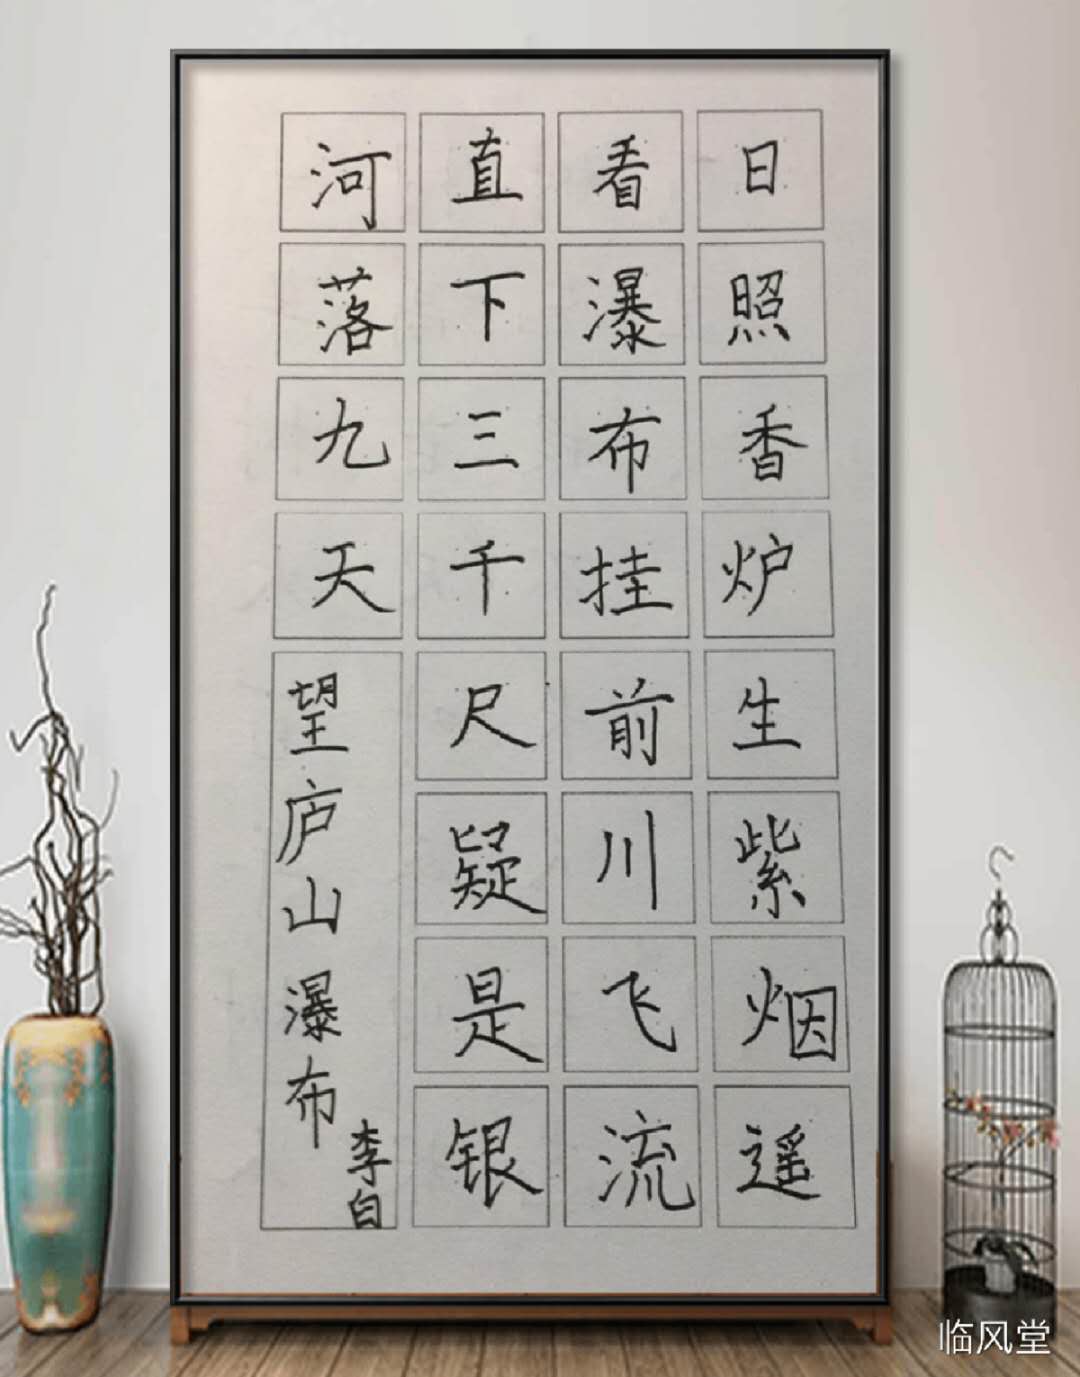 日照香炉生紫烟遥
看瀑布挂前川飞流
直下三千尺疑是银
河落九天
望庐山瀑布
李白
临风堂